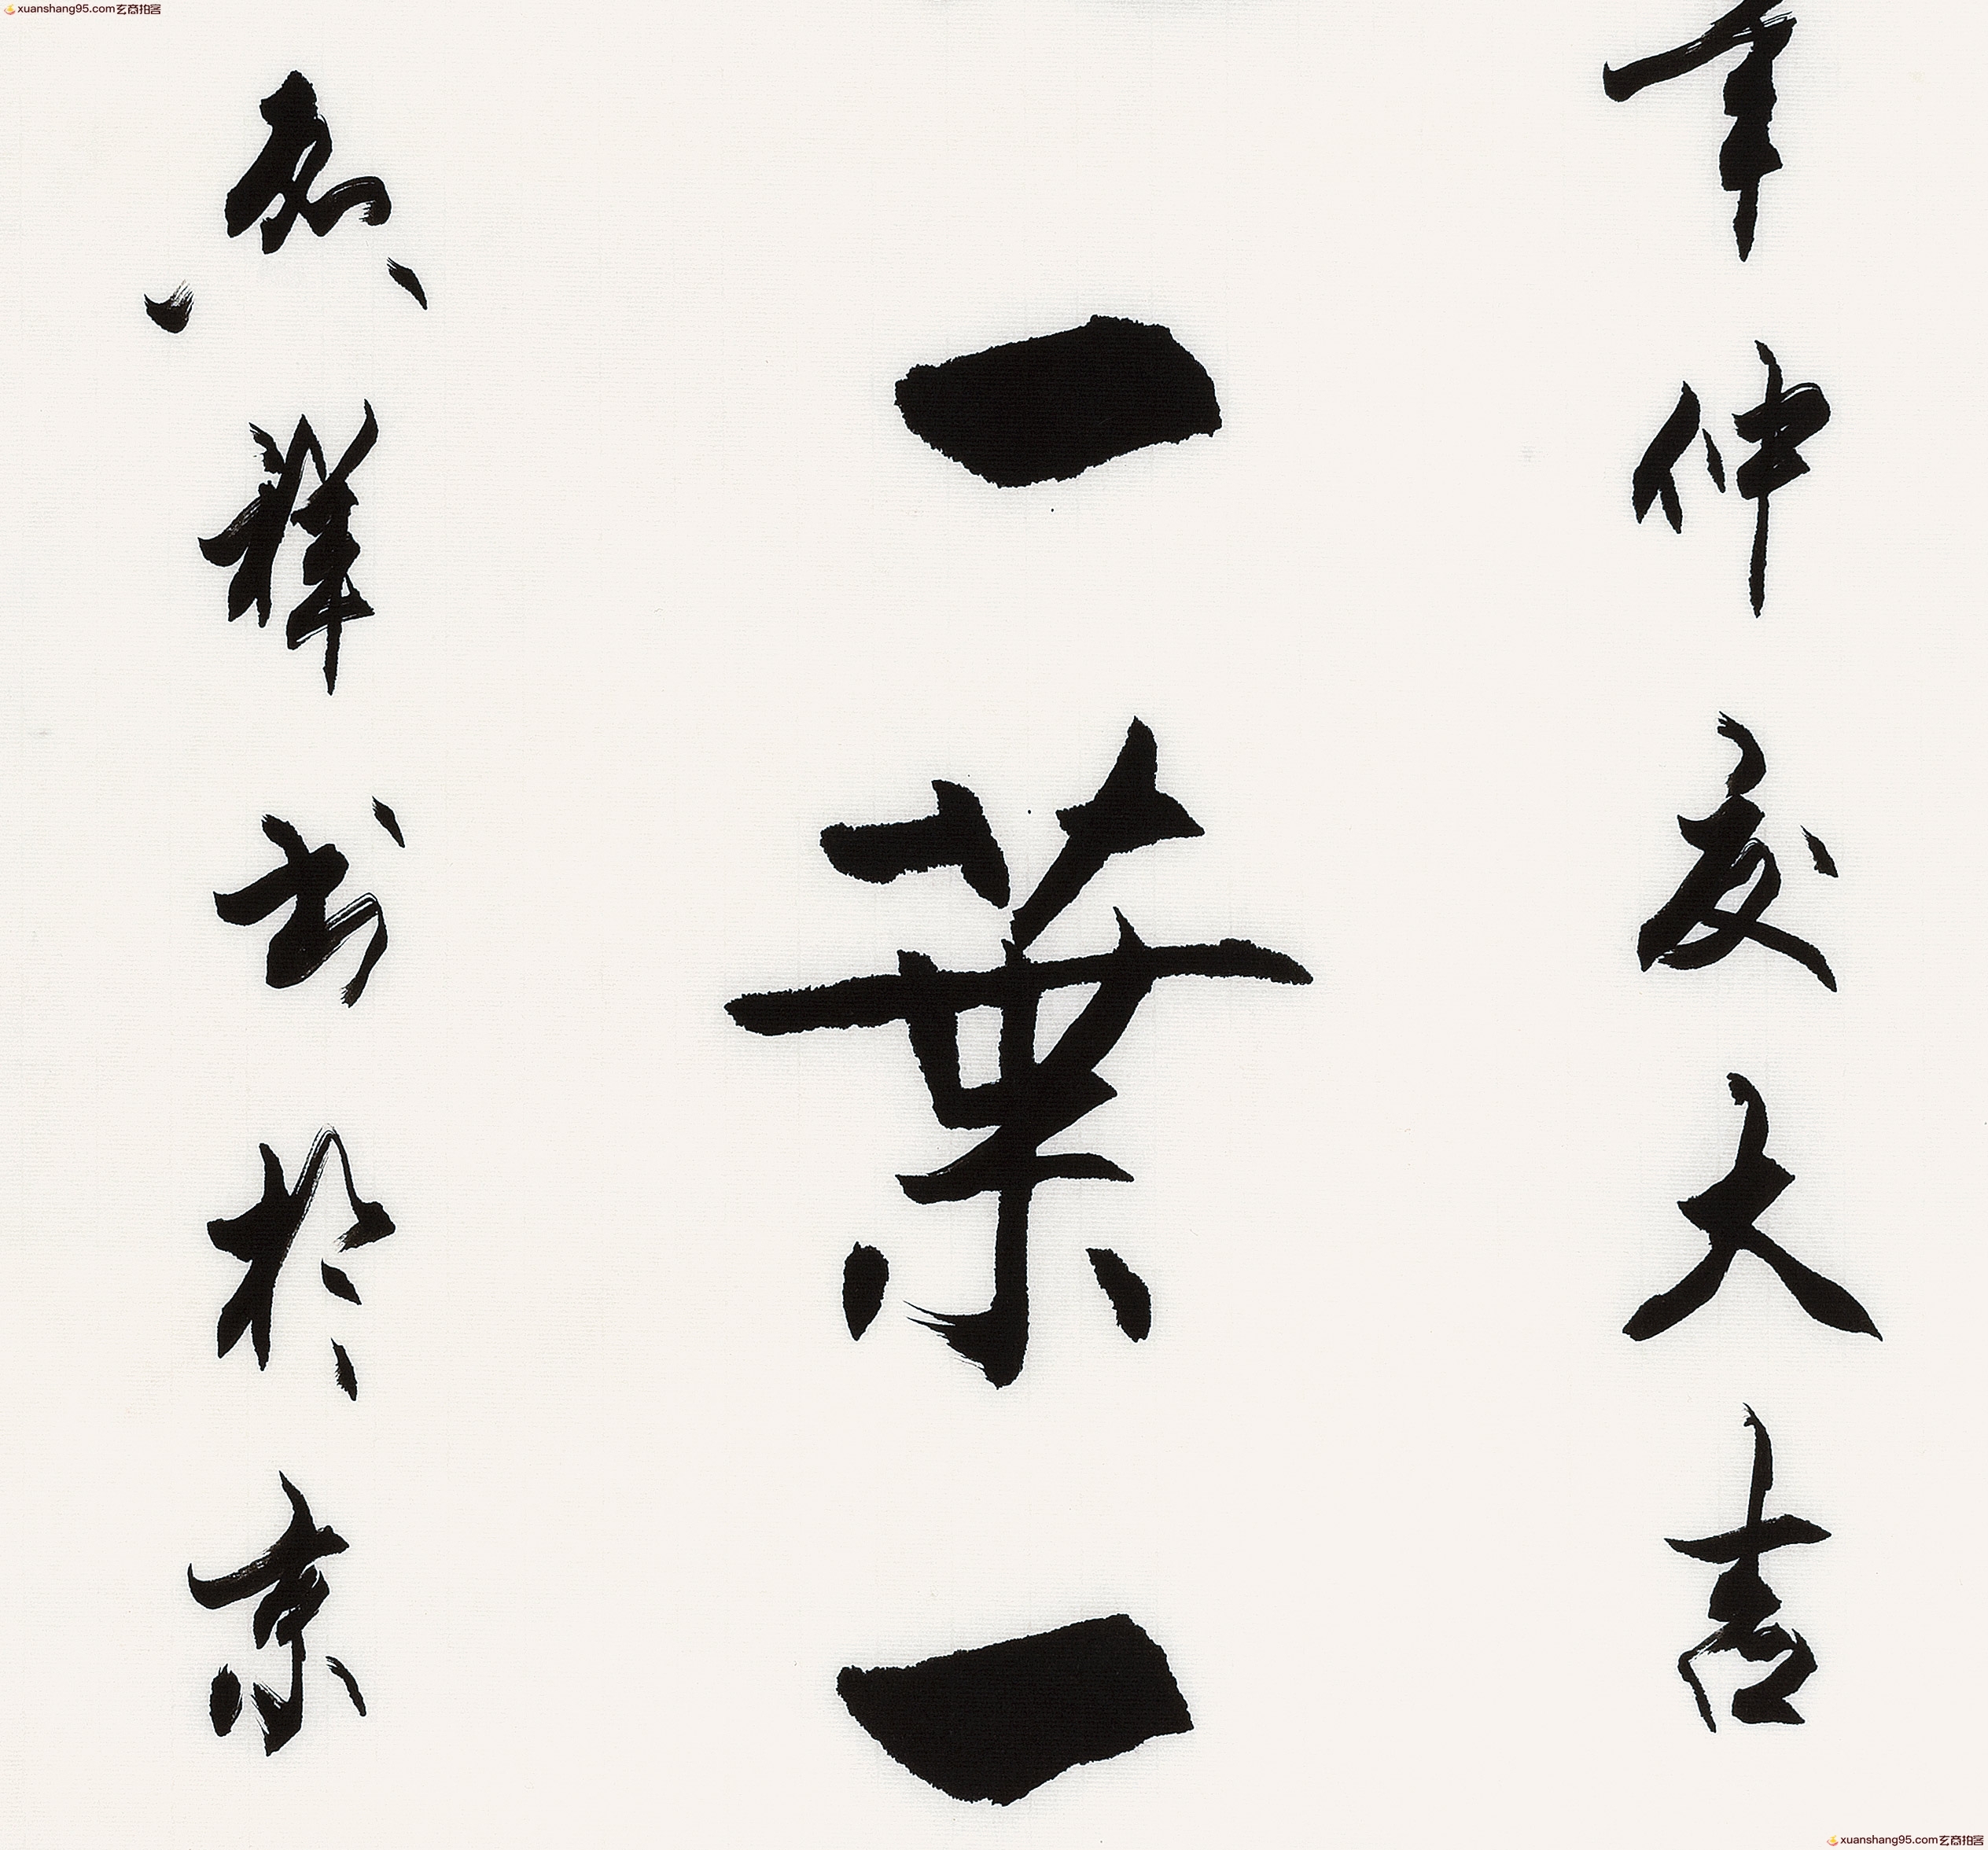 xuanshang95.com玄商拍客
年仲夏大吉
一葉一
祥书於京
xuanshang95.com玄商拍客